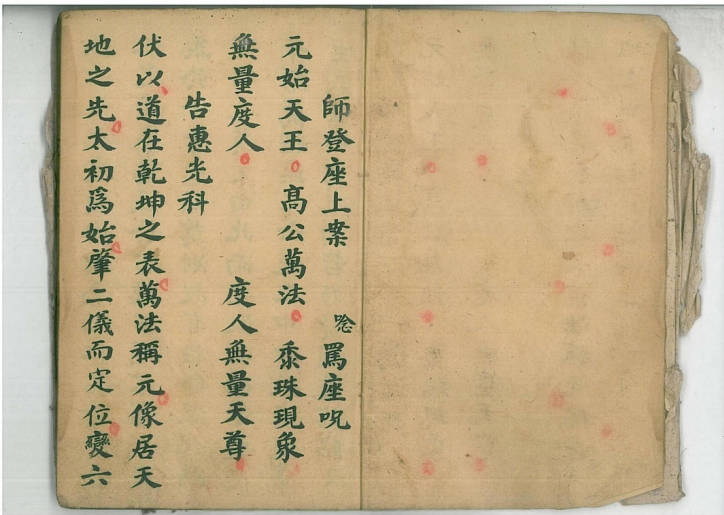 師登座上案 唸罵座呪
元始天王 髙公萬法 黍珠現象
無量度人 度人無量天尊
告惠光科
伏以道在乾坤之表萬法稱元像居天
地之先太初爲始肇二儀而定位變六